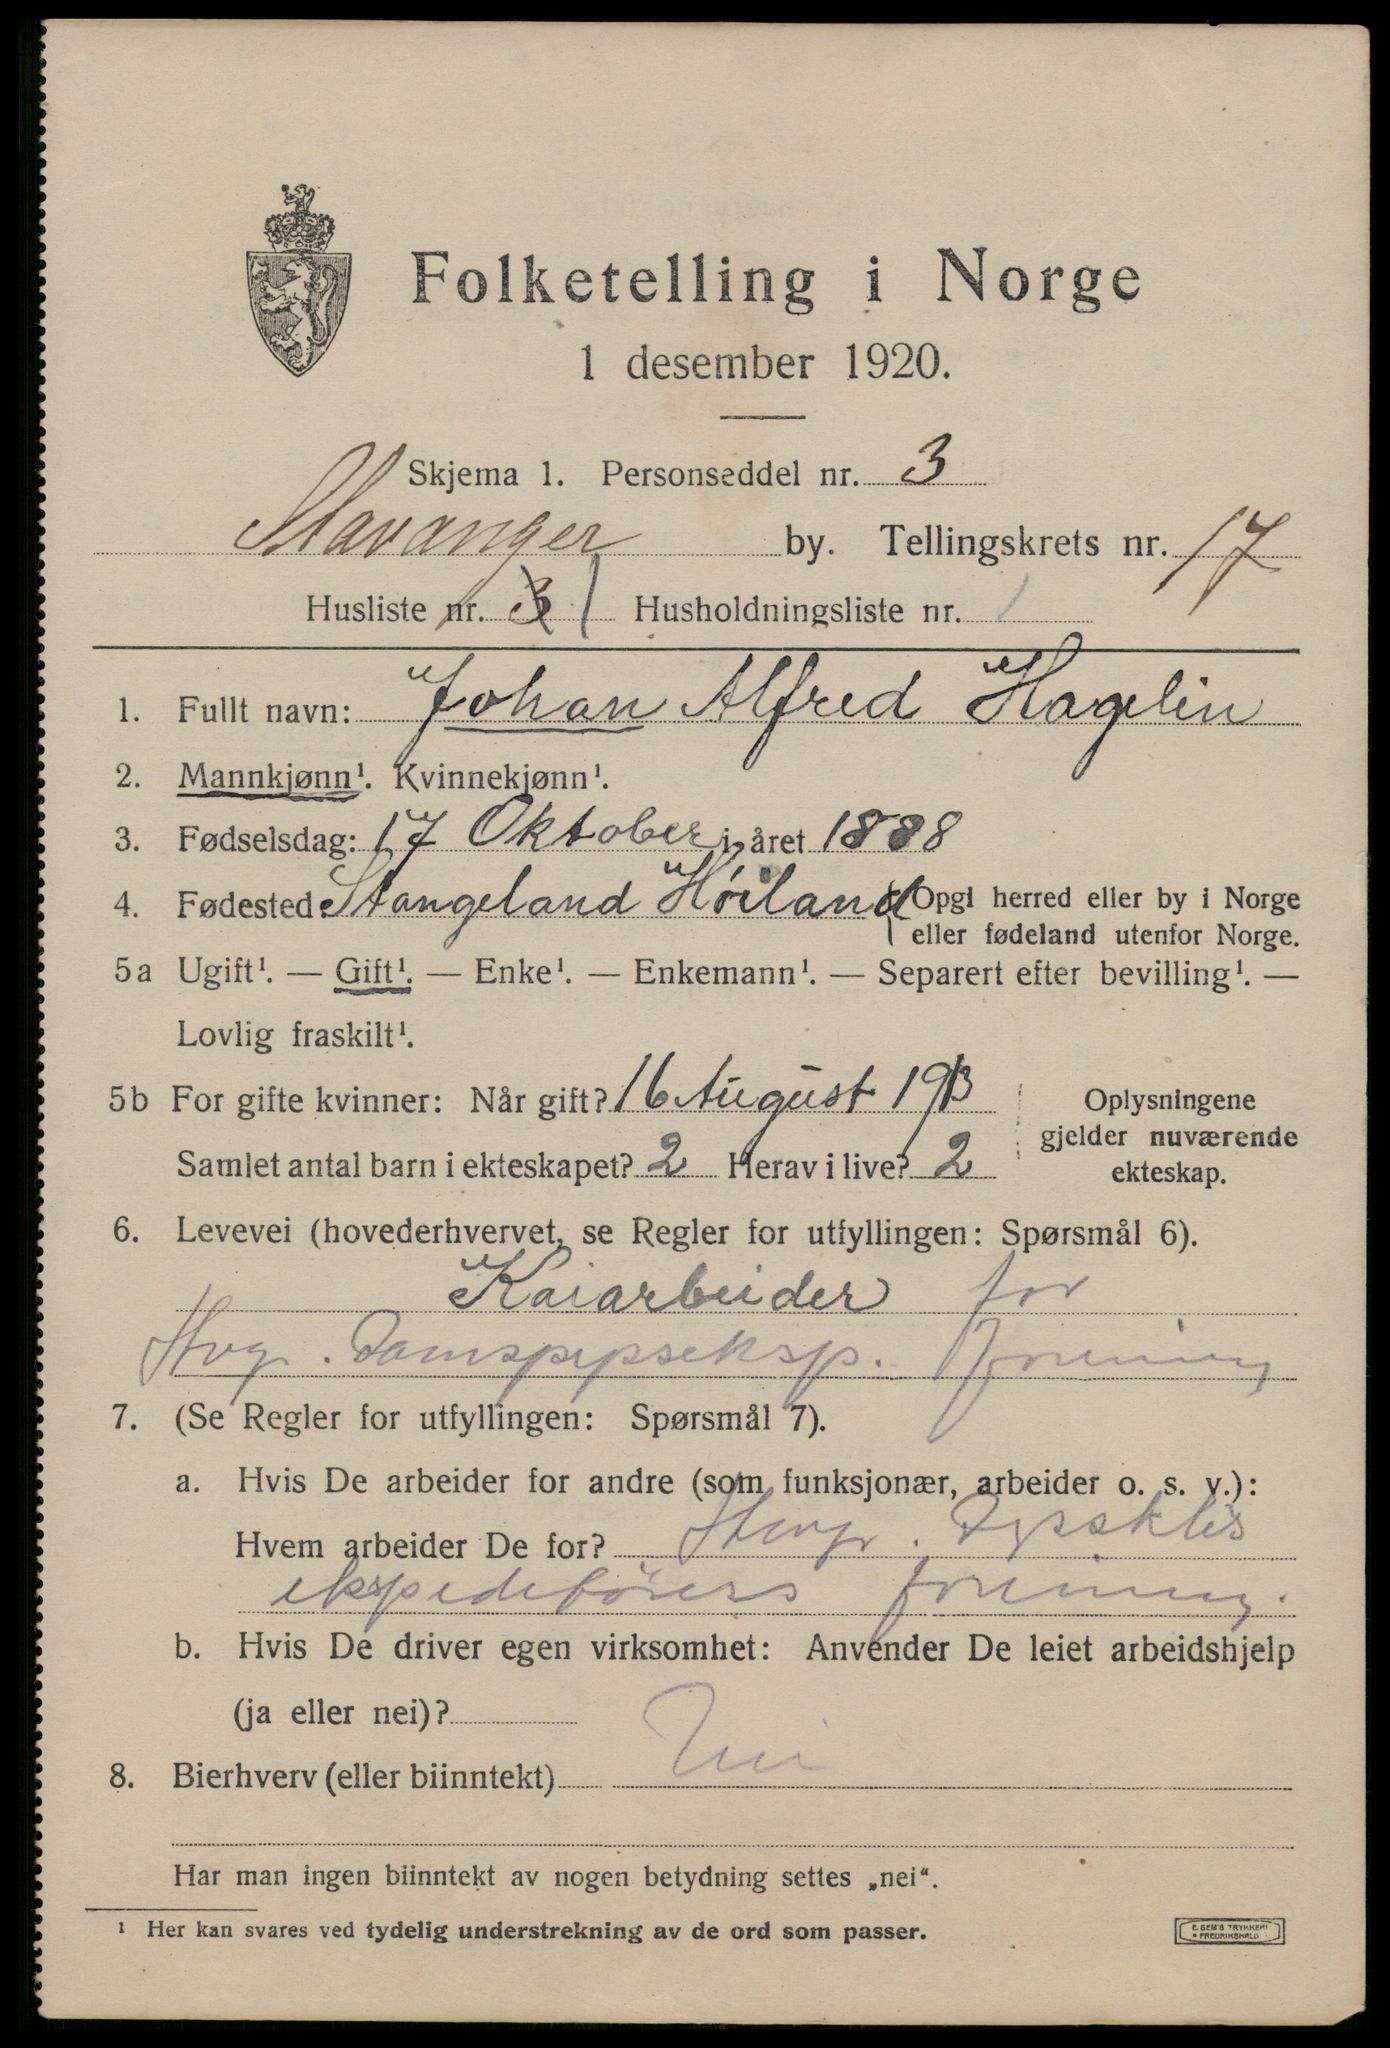 Folketelling i Norge
1 desember 1920.
Skjema 1. Personseddel nr. 3
Stavanger by. Tellingskrets nr. 17
Husliste nr. 3 1 Husholdningsliste nr. 1
1. Fullt navn: Johan Alfred Hagelin
2. Mannkjønn¹. Kvinnekjønn¹.
3. Fødselsdag: 17 Oktober i året 1888
4. Fødested Stangeland Høiland Opgi herred eller by i Norge
eller fødeland utenfor Norge.
5a Ugift¹. — Gift¹. — Enke¹. — Enkemann¹. — Separert efter bevilling¹. —
Lovlig fraskilt¹.
5b For gifte kvinner: Når gift? 16 August 1913 Oplysningene
gjelder nuværende
Samlet antal barn i ekteskapet? 2 Herav i live? 2 ekteskap.
6. Levevei (hovederhvervet, se Regler for utfyllingen: Spørsmål 6).
Kaiarbeider for
Stvgr. Damspipseksp. forening
7. (Se Regler for utfyllingen: Spørsmål 7).
a. Hvis De arbeider for andre (som funksjonær, arbeider o. s. v.):
Hvem arbeider De for? Stvgr.
ekspeditørers forening.
b. Hvis De driver egen virksomhet: Anvender De leiet arbeidshjelp
(ja eller nei)?
8. Bierhverv (eller biinntekt) Nei
Har man ingen biinntekt av nogen betydning settes „nei“.
¹ Her kan svares ved tydelig understrekning av de ord som passer.
E. SEM'S TRYKKERI
FREDRIKSHALD